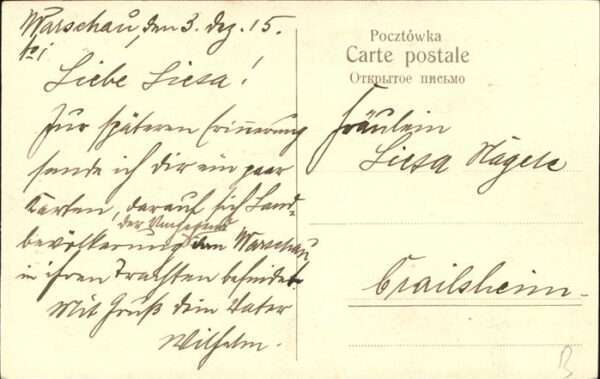 Warschau, den 3. Dez. 15.
No 1
Liebe Liesa!
Zur späteren Erinnerung
sende ich dir ein paar
Karten, darauf sich Land-
der Umgebung
bevölkerung von Warschau
in ihren Trachten befindet.
Mit Gruß dein Vater
Wilhelm.
Pocztówka
Carte postale
Открытое письмо
Fräulein
Liesa Nägele
Crailsheim.
B